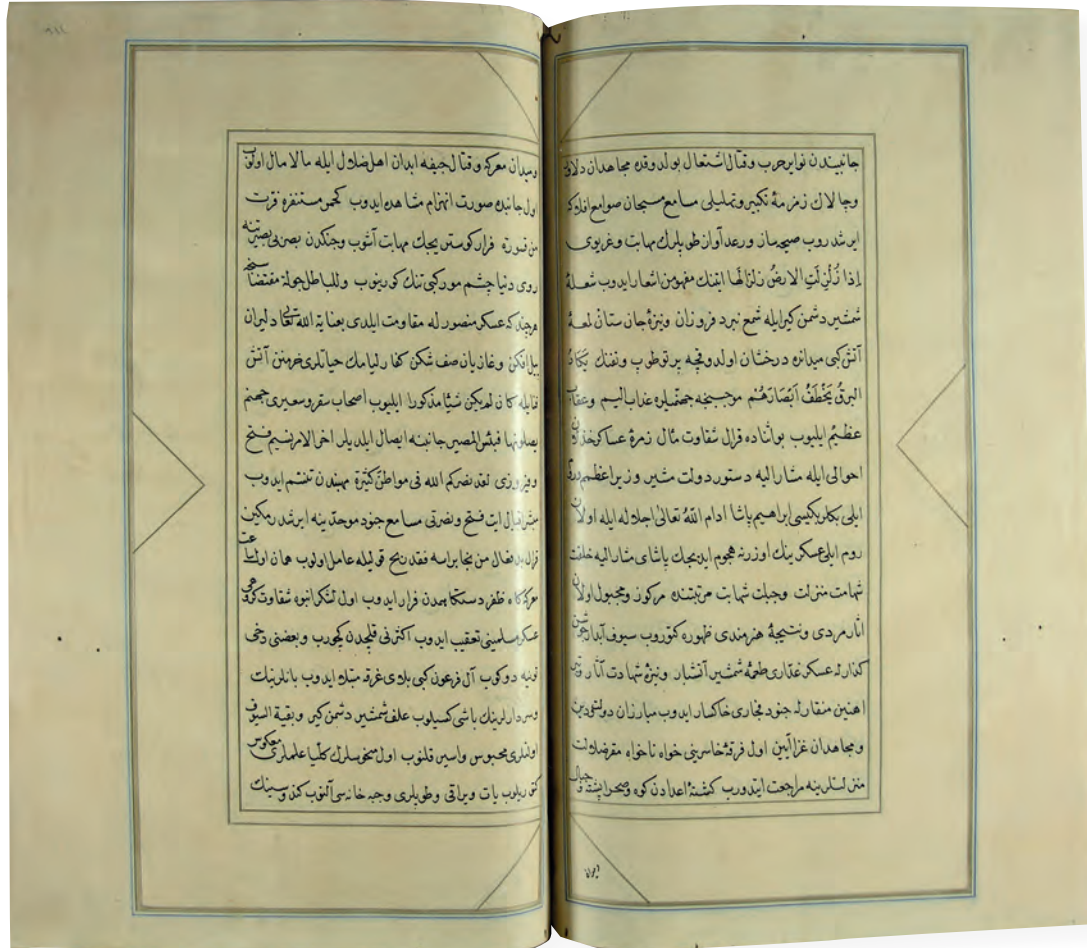 جانبیندن نوایر حرب وقتال اشتعال بولدوقده مجاهدان دلاور
وچالاك زمزمهٔ تکبیر وتهلیلی مسامع مسبحان صوامع افلاکه
ایرشدروب صیحه‌لر ورعد آوان طوپلرك مهابت وغریوی
إِذَا زُلْزِلَتِ الارضُ زلزالها ایتنك مفهومن اشعار ایدوب شعلهٔ
شمشیر دشمن کیر ایله شمع نبرد فروزان ونیزهٔ جان ستان لمعهٔ
آتش کبی میدانده درخشان اولدوقچه برق طوب وتفنك یکاد
البرقُ یَخْطَفُ اَبْصَارَهُم موجبنجه عذاب الیم وعقاب
عظیم ایلیوب بو اثناده قرال شقاوت مٔال زمرهٔ عساکر خذلان
احوالی ایله مشار الیه دستور دولت مشیر وزیر اعظم وروم
ایلی بکلربکیسی ابراهیم پاشا ادام اللهُ تعالی اجلاله ایله اولان
روم ایلی عسکرینك اوزرنه هجوم ایدیجك پاشای مشار الیه خلقت
شهامت منزلت وجبلت شهابت مرتبتنده مرکوز ومجبول اولان
اثار مردی ونتیجهٔ هنرمندی ظهوره کتوروب سیوف آبدار جوشن
کذارله عسکر غداری طعمهٔ شمشیر آتشبار ونیزهٔ شهادت آثار وتیر
اهنین منقارله جنود فجاری خاکسار ایدوب مبارزان دولتی دین
ومجاهدان غزا آیین اول فرقهٔ خاسرینی خواه ناخواه مقر ضلالت
منزلتلرینه مراجعت ایتدورب کشتهٔ اعدادن کوه وصحرا پشته وجبال
ومیدان معرکه وقتال جیفه ابدان اهل ضلال ایله مالامال اولوب
اول جانبده صورت انهزام مشاهده ایدوب کحمر مستنفره فرت
من قسورة فرار کوستریجك مهابت آشوب وجنکدن بصر بی بصیرتنه
روی دنیا چشم مور کبی تنك کورینوب وللباطل جولة مقتضاسنجه
هر چند که عسکر منصور له مقاومت ایلدی بعنایة الله تعالی دلیران
پیل افکن وغازیان صف شکن کفار لیامك حیاتلری خرمنن آتش
فنا ایله کان لم یکن شیئا مذکورا ایلیوب اصحاب سقر وسعیری جهنم
یصلونها فبئس المصیر جانبنه ایصال ایلدیلر اخر الامر نسیم فتح
وفیروزی لقد نصرکم الله فی مواطن کثیرة مهبندن تنسم ایدوب
مبشر اقبال ایت فتح ونصرتی مسامع جنود موحدینه ایرشدرمکین
قرال من نجا براسه فقد ربح قولیله عامل اولوب همان اول ساعت
معرکه کاه ظفر دستکاهدن فرار ایدوب اول لشکر انبوه شقاوت کروهی
عسکر مسلمینی تعقیب ایدوب اکثرنی قلیجدن کچورب وبعضنی دخی
تونیه دوکوب آل فرعون کبی بلای غرقه مبتلا ایدوب بانلرینك
وسردارلرینك باشی کسیلوب علف شمشیر دشمن کیر وبقیة السیوف
اولنلری محبوس واسیر قلنوب اول منحوسلرك کلّیا علملری معکوس
کتوریلوب یات ویراقی وطوپلری وجبه خانه‌سی آلنوب کندوسینك